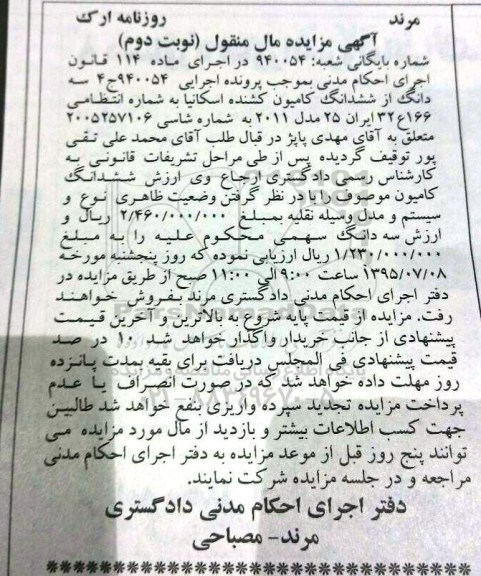 مرند روزنامه ارک
آگهی مزایده مال منقول (نوبت دوم)
شماره بایگانی شعبه: ۹۴۰۰۵۴ در اجرای ماده ۱۱۴ قانون
اجرای احکام مدنی بموجب پرونده اجرایی ۹۴۰۰۵۴ج۴ سه
دانگ از ششدانگ کامیون کشنده اسکانیا به شماره انتظامی
۱۶۶ع۳۲ ایران ۲۵ مدل ۲۰۱۱ به شماره شاسی ۲۰۰۵۲۵۷۱۰۶
متعلق به آقای مهدی پاپژ در قبال طلب آقای محمد علی تقی
پور توقیف گردیده پس از طی مراحل تشریفات قانونی به
کارشناس رسمی دادگستری ارجاع وی ارزش ششدانگ
کامیون موصوف را با در نظر گرفتن وضعیت ظاهری نوع و
سیستم و مدل وسیله نقلیه بمبلغ ۲/۴۶۰/۰۰۰/۰۰۰ ریال و
ارزش سه دانگ سهمی محکوم علیه را به مبلغ
۱/۲۳۰/۰۰۰/۰۰۰ ریال ارزیابی نموده که روز پنجشنبه مورخه
۱۳۹۵/۰۷/۰۸ ساعت ۹:۰۰ الی ۱۱:۰۰ صبح از طریق مزایده در
دفتر اجرای احکام مدنی دادگستری مرند بفروش خواهند
رفت. مزایده از قیمت پایه شروع به بالاترین و آخرین قیمت
پیشنهادی از جانب خریدار واگذار خواهد شد. ۱۰ در صد
قیمت پیشنهادی فی المجلس دریافت برای بقیه بمدت پانزده
روز مهلت داده خواهد شد که در صورت انصراف یا عدم
پرداخت مزایده تجدید سپرده واریزی بنفع خواهد شد طالبین
جهت کسب اطلاعات بیشتر و بازدید از مال مورد مزایده می
توانند پنج روز قبل از موعد مزایده به دفتر اجرای احکام مدنی
مراجعه و در جلسه مزایده شرکت نمایند.
دفتر اجرای احکام مدنی دادگستری
مرند- مصباحی